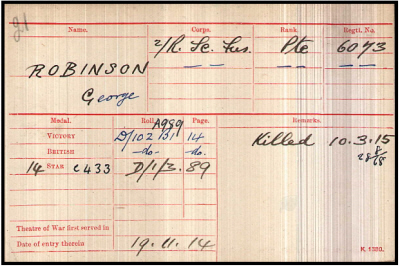 Name. Corps. Rank. Regtl. No.
2/R. Sc. Fus. Pte 6073
ROBINSON
George
Medal. Roll. Page. Remarks.
VICTORY D/102 B1 14 Killed 10.3.15
BRITISH -do- -do-
14 STAR C433 D/1/3. 89
Theatre of War first served in
Date of entry therein 19.11.14
K. 1380.